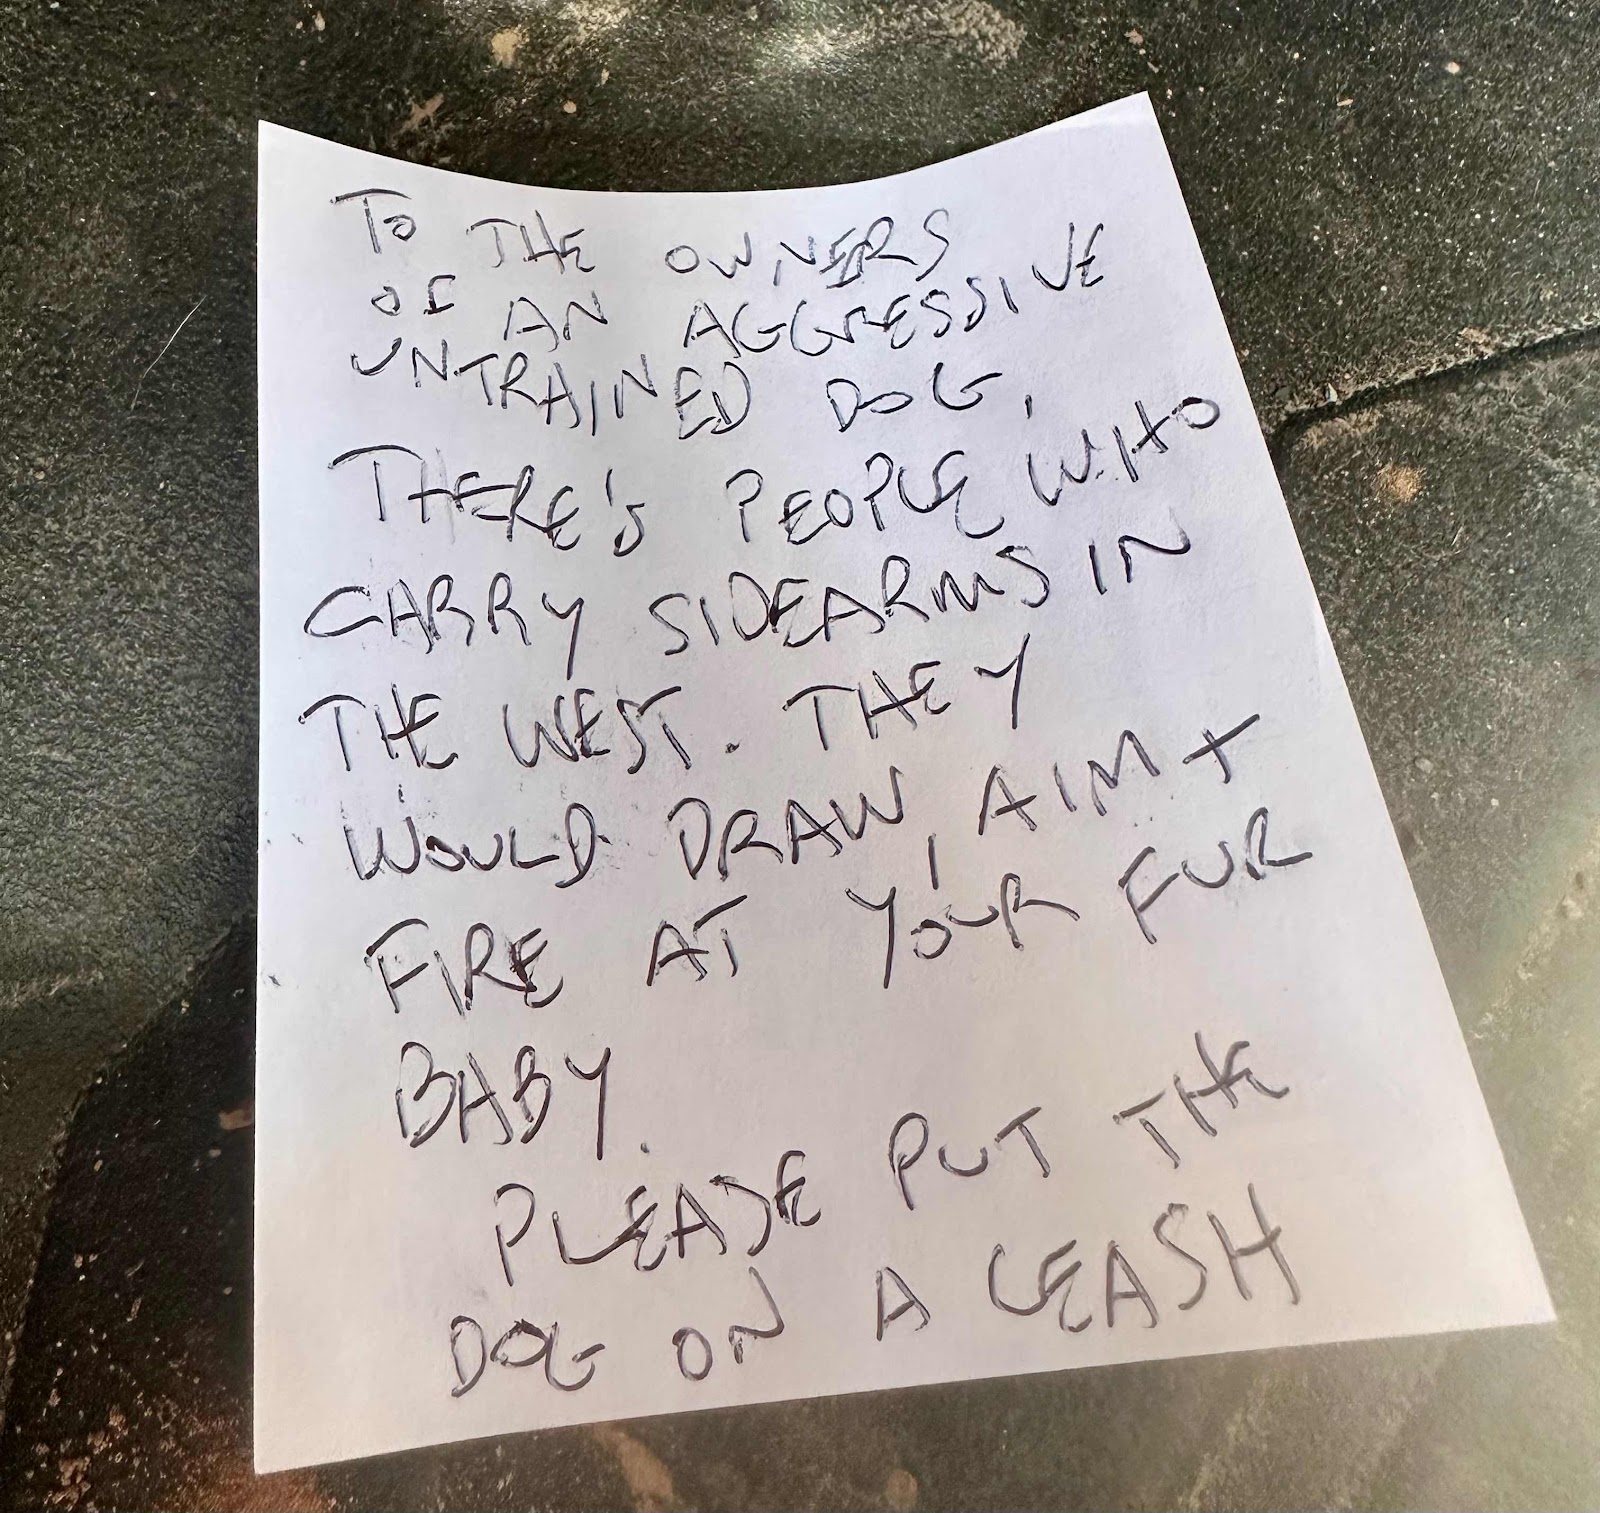 TO THE OWNERS
OF AN AGGRESSIVE
UNTRAINED DOG,
THERE'S PEOPLE WHO
CARRY SIDEARMS IN
THE WEST. THEY
WOULD DRAW, AIM +
FIRE AT YOUR FUR
BABY.
PLEASE PUT THE
DOG ON A LEASH